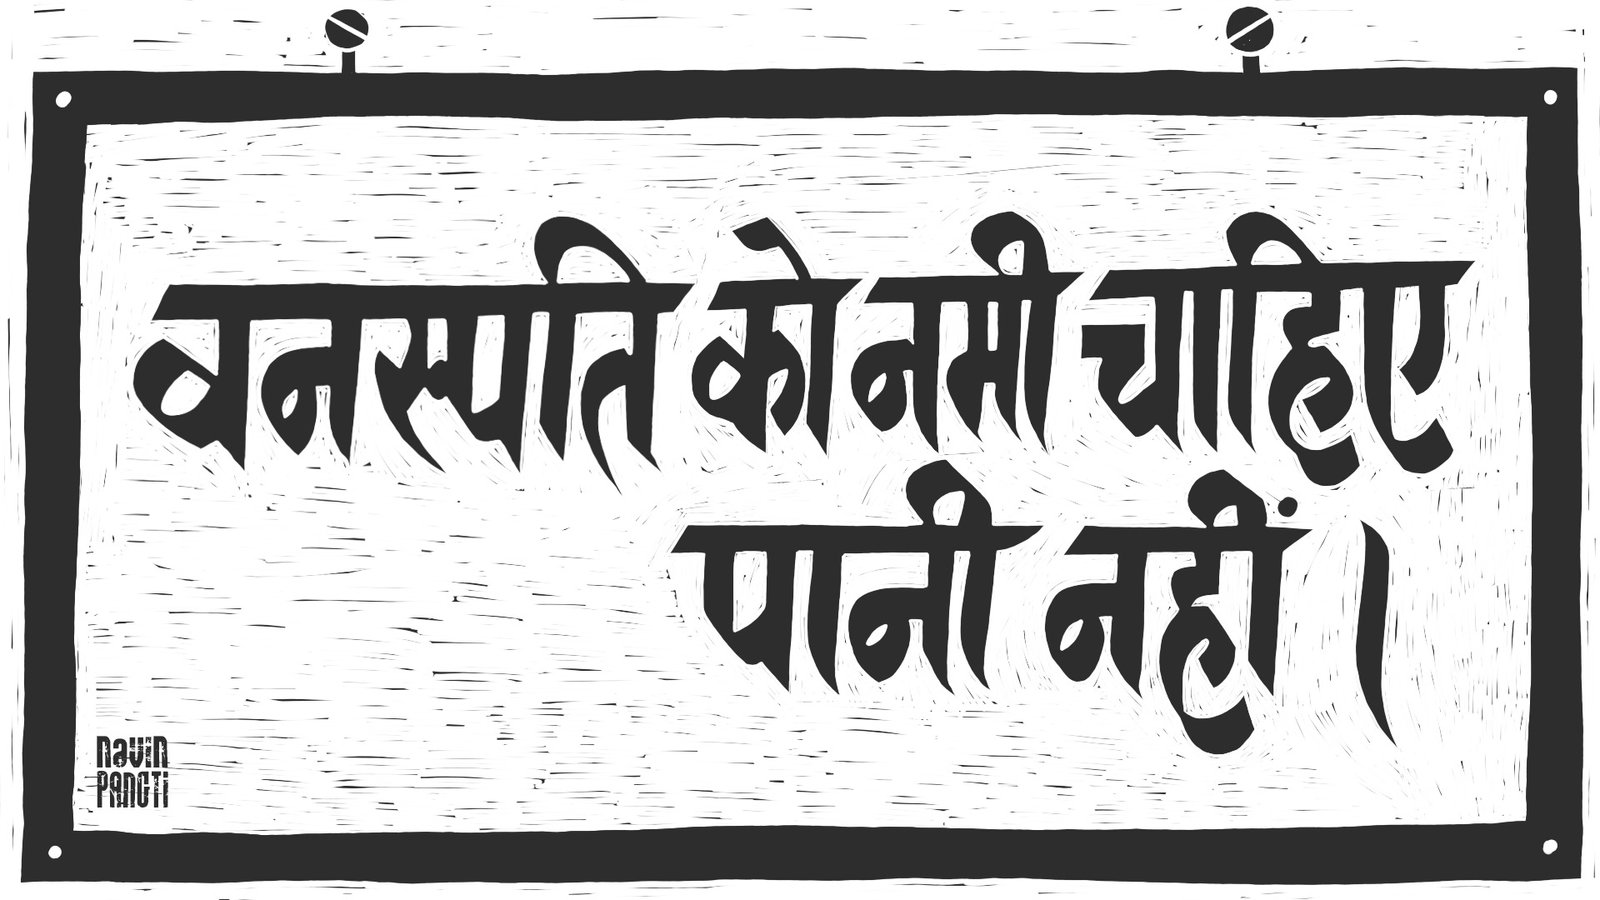 वनस्पति को नमी चाहिए
पानी नहीं।
NAVIN
PANGTI